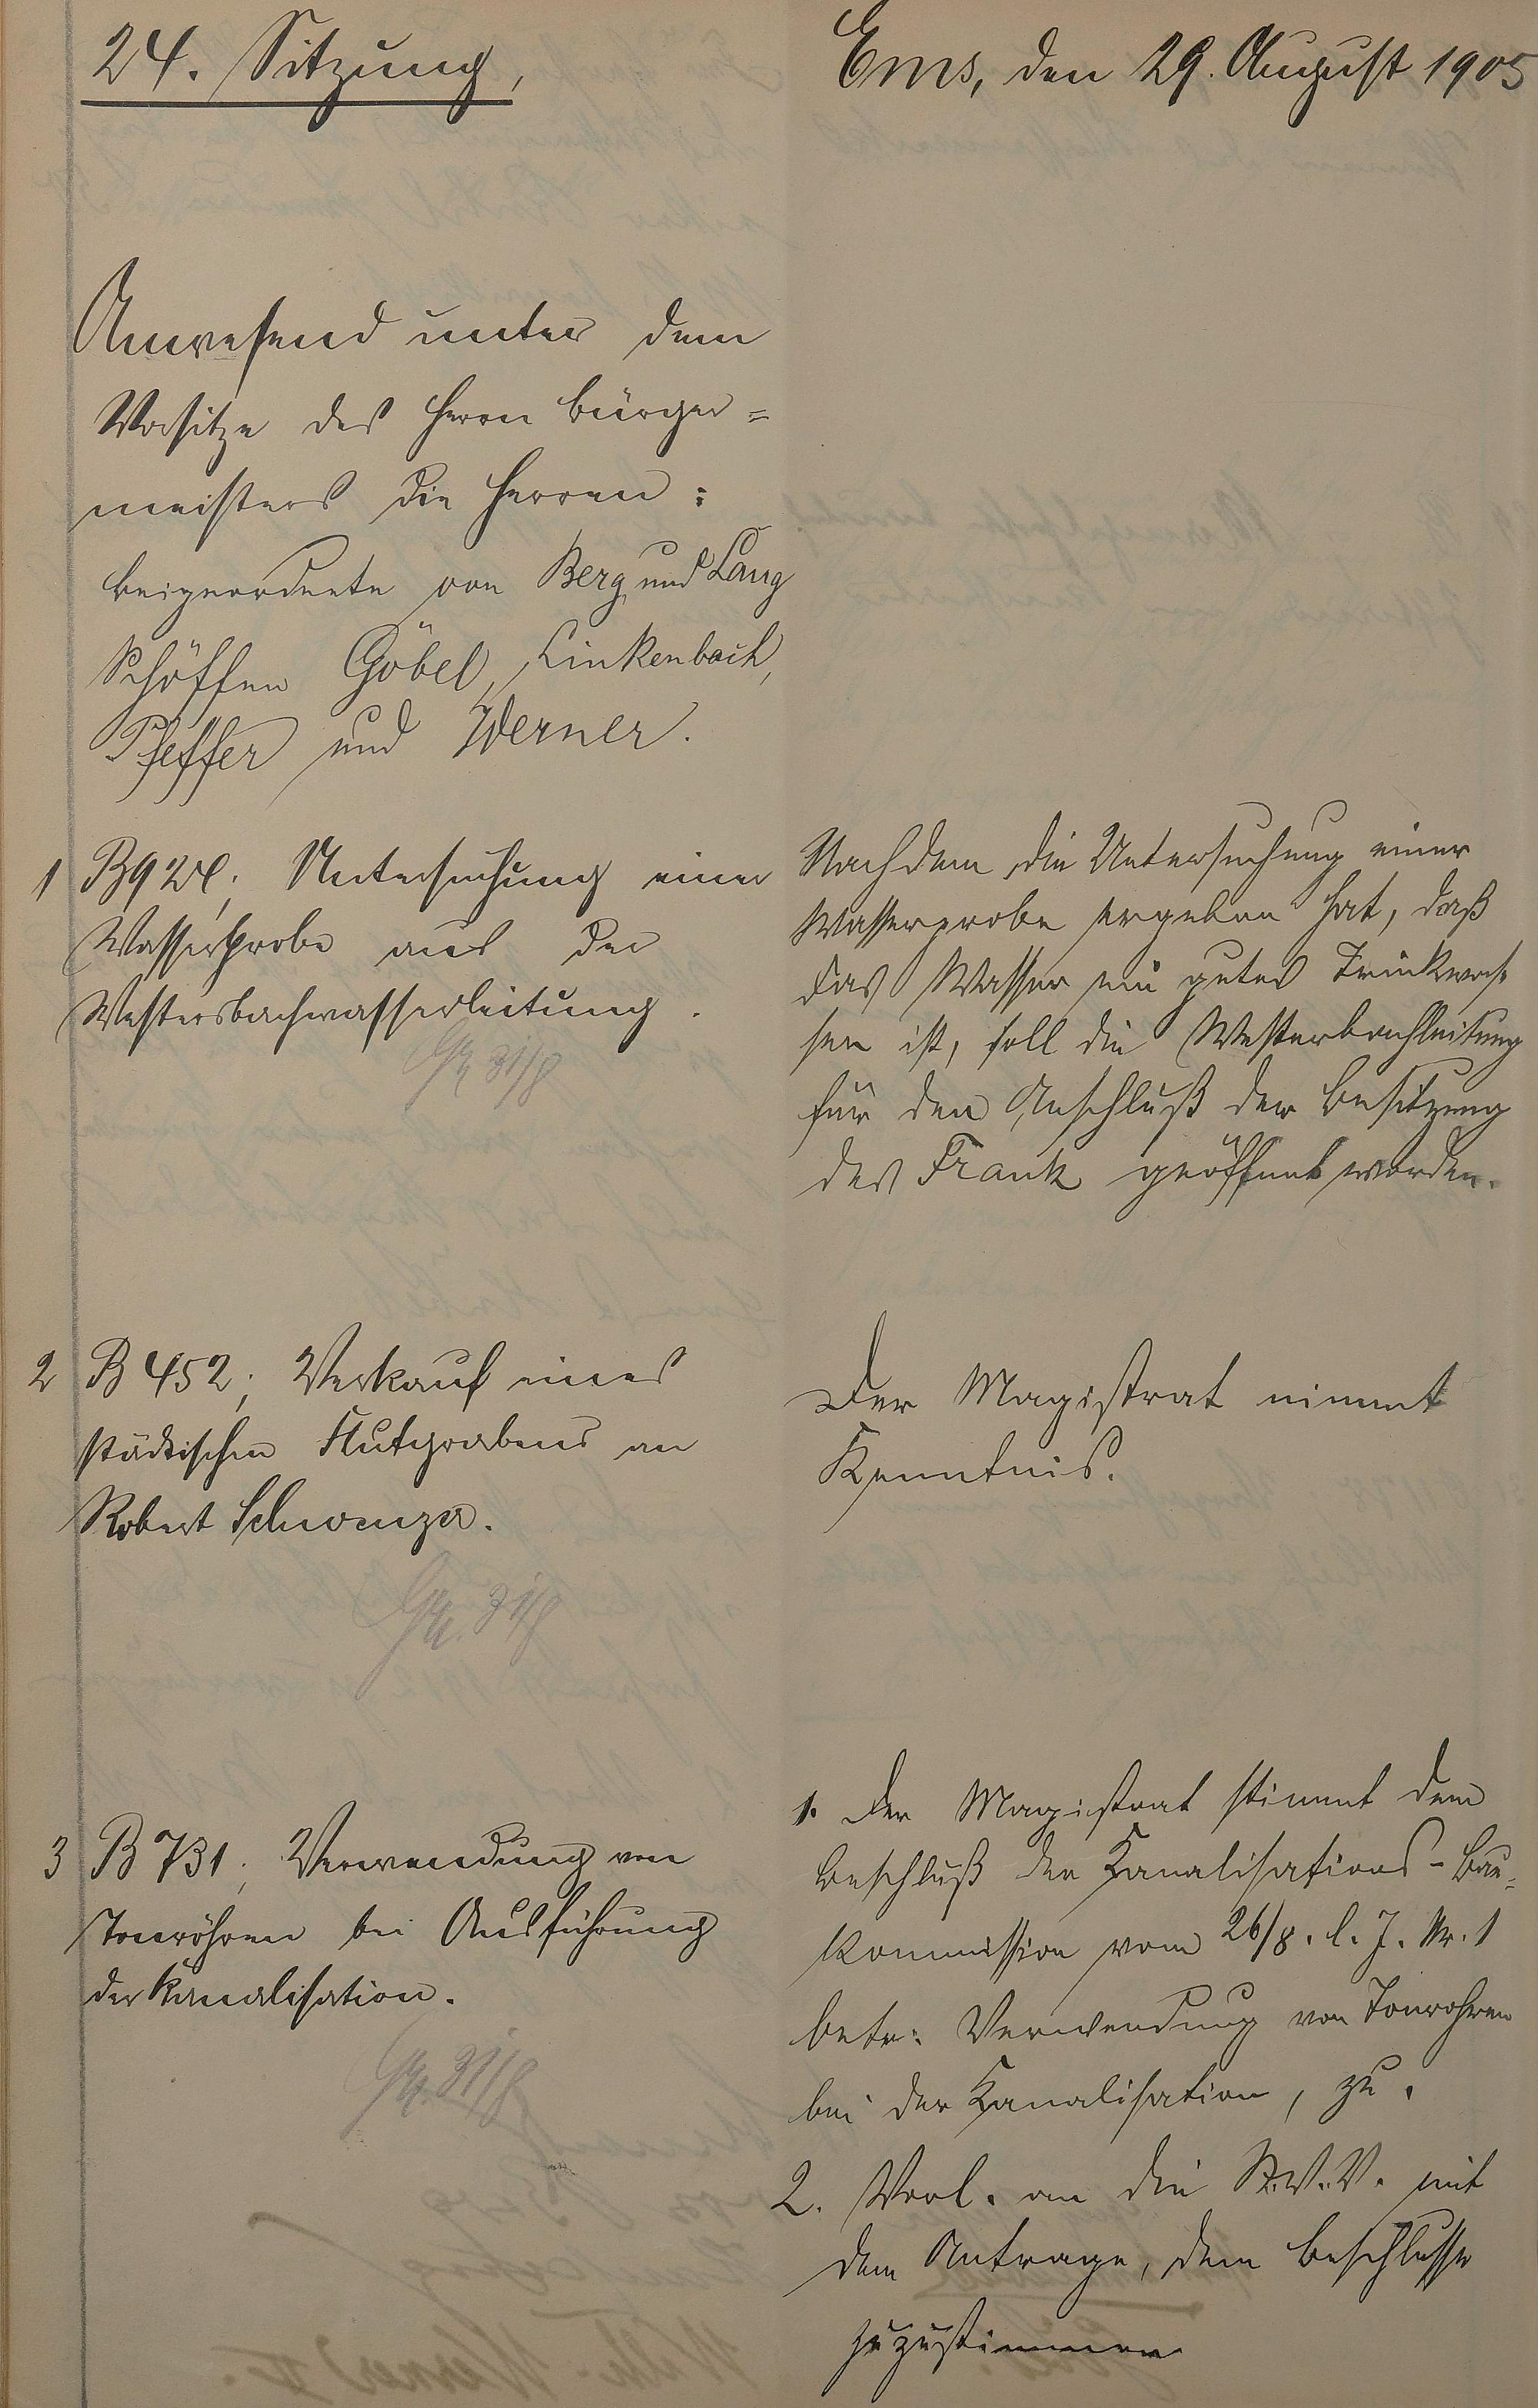 24. Sitzung,
Ems, den 29. August 1905
Anwesend unter dem
Vorsitze des Herrn Bürger=
meisters die Herren:
Beigeordnete von Berg und Lang
Schöffen Göbel, Linkenbach,
Pfeffer und Werner.
1 B 924, Untersuchung einer
Wasserprobe aus der
Westersbachwasserleitung.
31/8
Nachdem die Untersuchung einer
Wasserprobe ergeben hat, daß
das Wasser ein gutes Trinkwas
ser ist, soll die Westerbachleitung
für den Anschluß der Besitzung
des Frank geöffnet werden.
2 B 452, Verkauf eines
städtischen Flutgrabens an
Robert Schwenzer.
31/8
Der Magistrat nimmt
Kenntnis.
3 B 731, Verwendung von
Tonröhren bei Ausführung
der Kanalisation.
31/8
1. Der Magistrat stimmt dem
Beschluß der Kanalisations-Bau=
kommission vom 26/8. l. J. Nr. 1
betr: Verwendung von Tonrohren
bei der Kanalisation, zu.
2. Vorl. an die St.V.V. mit
dem Antrage, dem Beschlusse
zuzustimmen